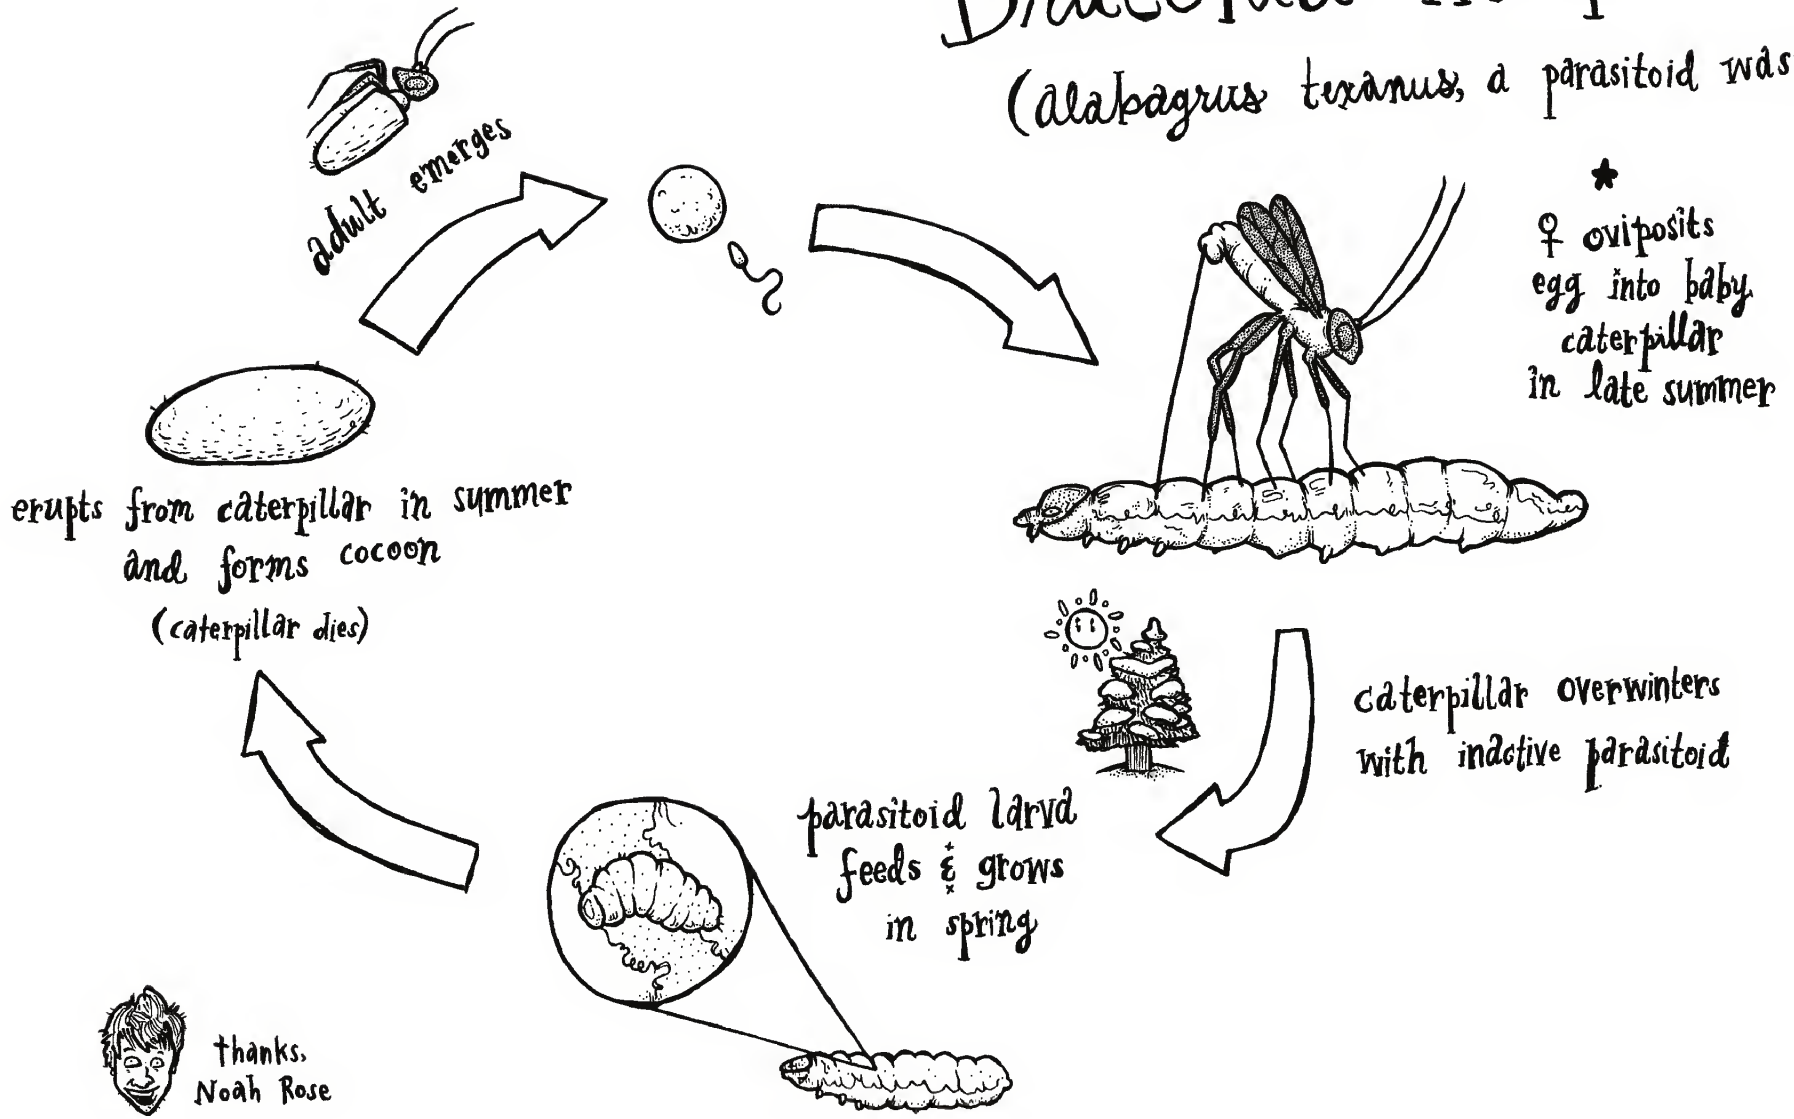 (alabagrus texanus, a parasitoid was
★
♀ oviposits
egg into baby
caterpillar
in late summer
adult emerges
erupts from caterpillar in summer
and forms cocoon
(caterpillar dies)
caterpillar overwinters
with inactive parasitoid
parasitoid larva
feeds & grows
in spring
thanks,
Noah Rose